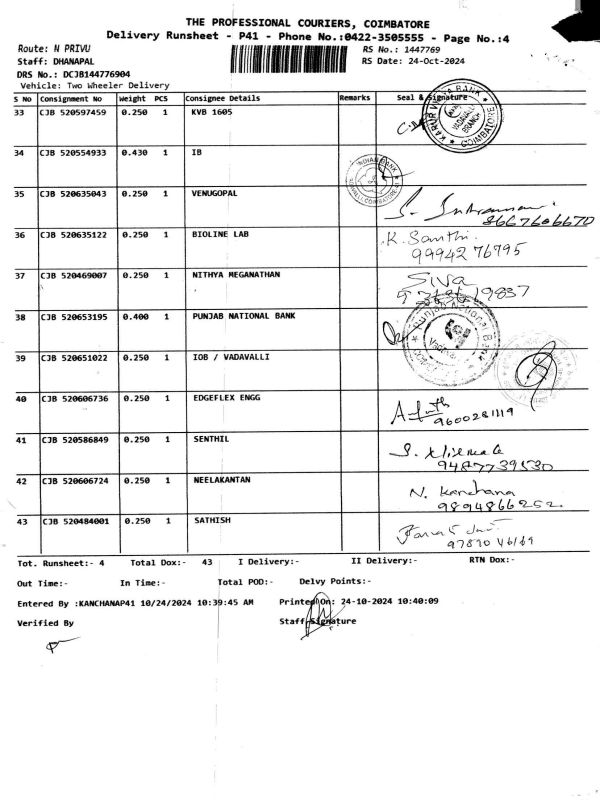 THE PROFESSIONAL COURIERS, COIMBATORE
Delivery Runsheet - P41 - Phone No.:0422-3505555 - Page No.:4
Route: N PRIVU RS No.: 1447769
Staff: DHANAPAL RS Date: 24-Oct-2024
DRS No.: DCJB144776904
Vehicle: Two Wheeler Delivery
S No Consignment No Weight PCS Consignee Details Remarks Seal & Signature
33 CJB 520597459 0.250 1 KVB 1605
KARUR VYSYA BANK VADAVALLI BRANCH COIMBATORE
34 CJB 520554933 0.430 1 IB
INDIAN BANK
35 CJB 520635043 0.250 1 VENUGOPAL
8667606670
36 CJB 520635122 0.250 1 BIOLINE LAB K. Santhi
99942 76795
37 CJB 520469007 0.250 1 NITHYA MEGANATHAN Siva
38 CJB 520653195 0.400 1 PUNJAB NATIONAL BANK
Punjab National Bank
39 CJB 520651022 0.250 1 IOB / VADAVALLI
40 CJB 520606736 0.250 1 EDGEFLEX ENGG
9600281119
41 CJB 520586849 0.250 1 SENTHIL
9487739530
42 CJB 520606724 0.250 1 NEELAKANTAN N. Kanchana
9894866252
43 CJB 520484001 0.250 1 SATHISH
Tot. Runsheet:- 4 Total Dox:- 43 I Delivery:- II Delivery:- RTN Dox:-
Out Time:- In Time:- Total POD:- Delvy Points:-
Entered By :KANCHANAP41 10/24/2024 10:39:45 AM Printed On: 24-10-2024 10:40:09
Verified By Staff Signature